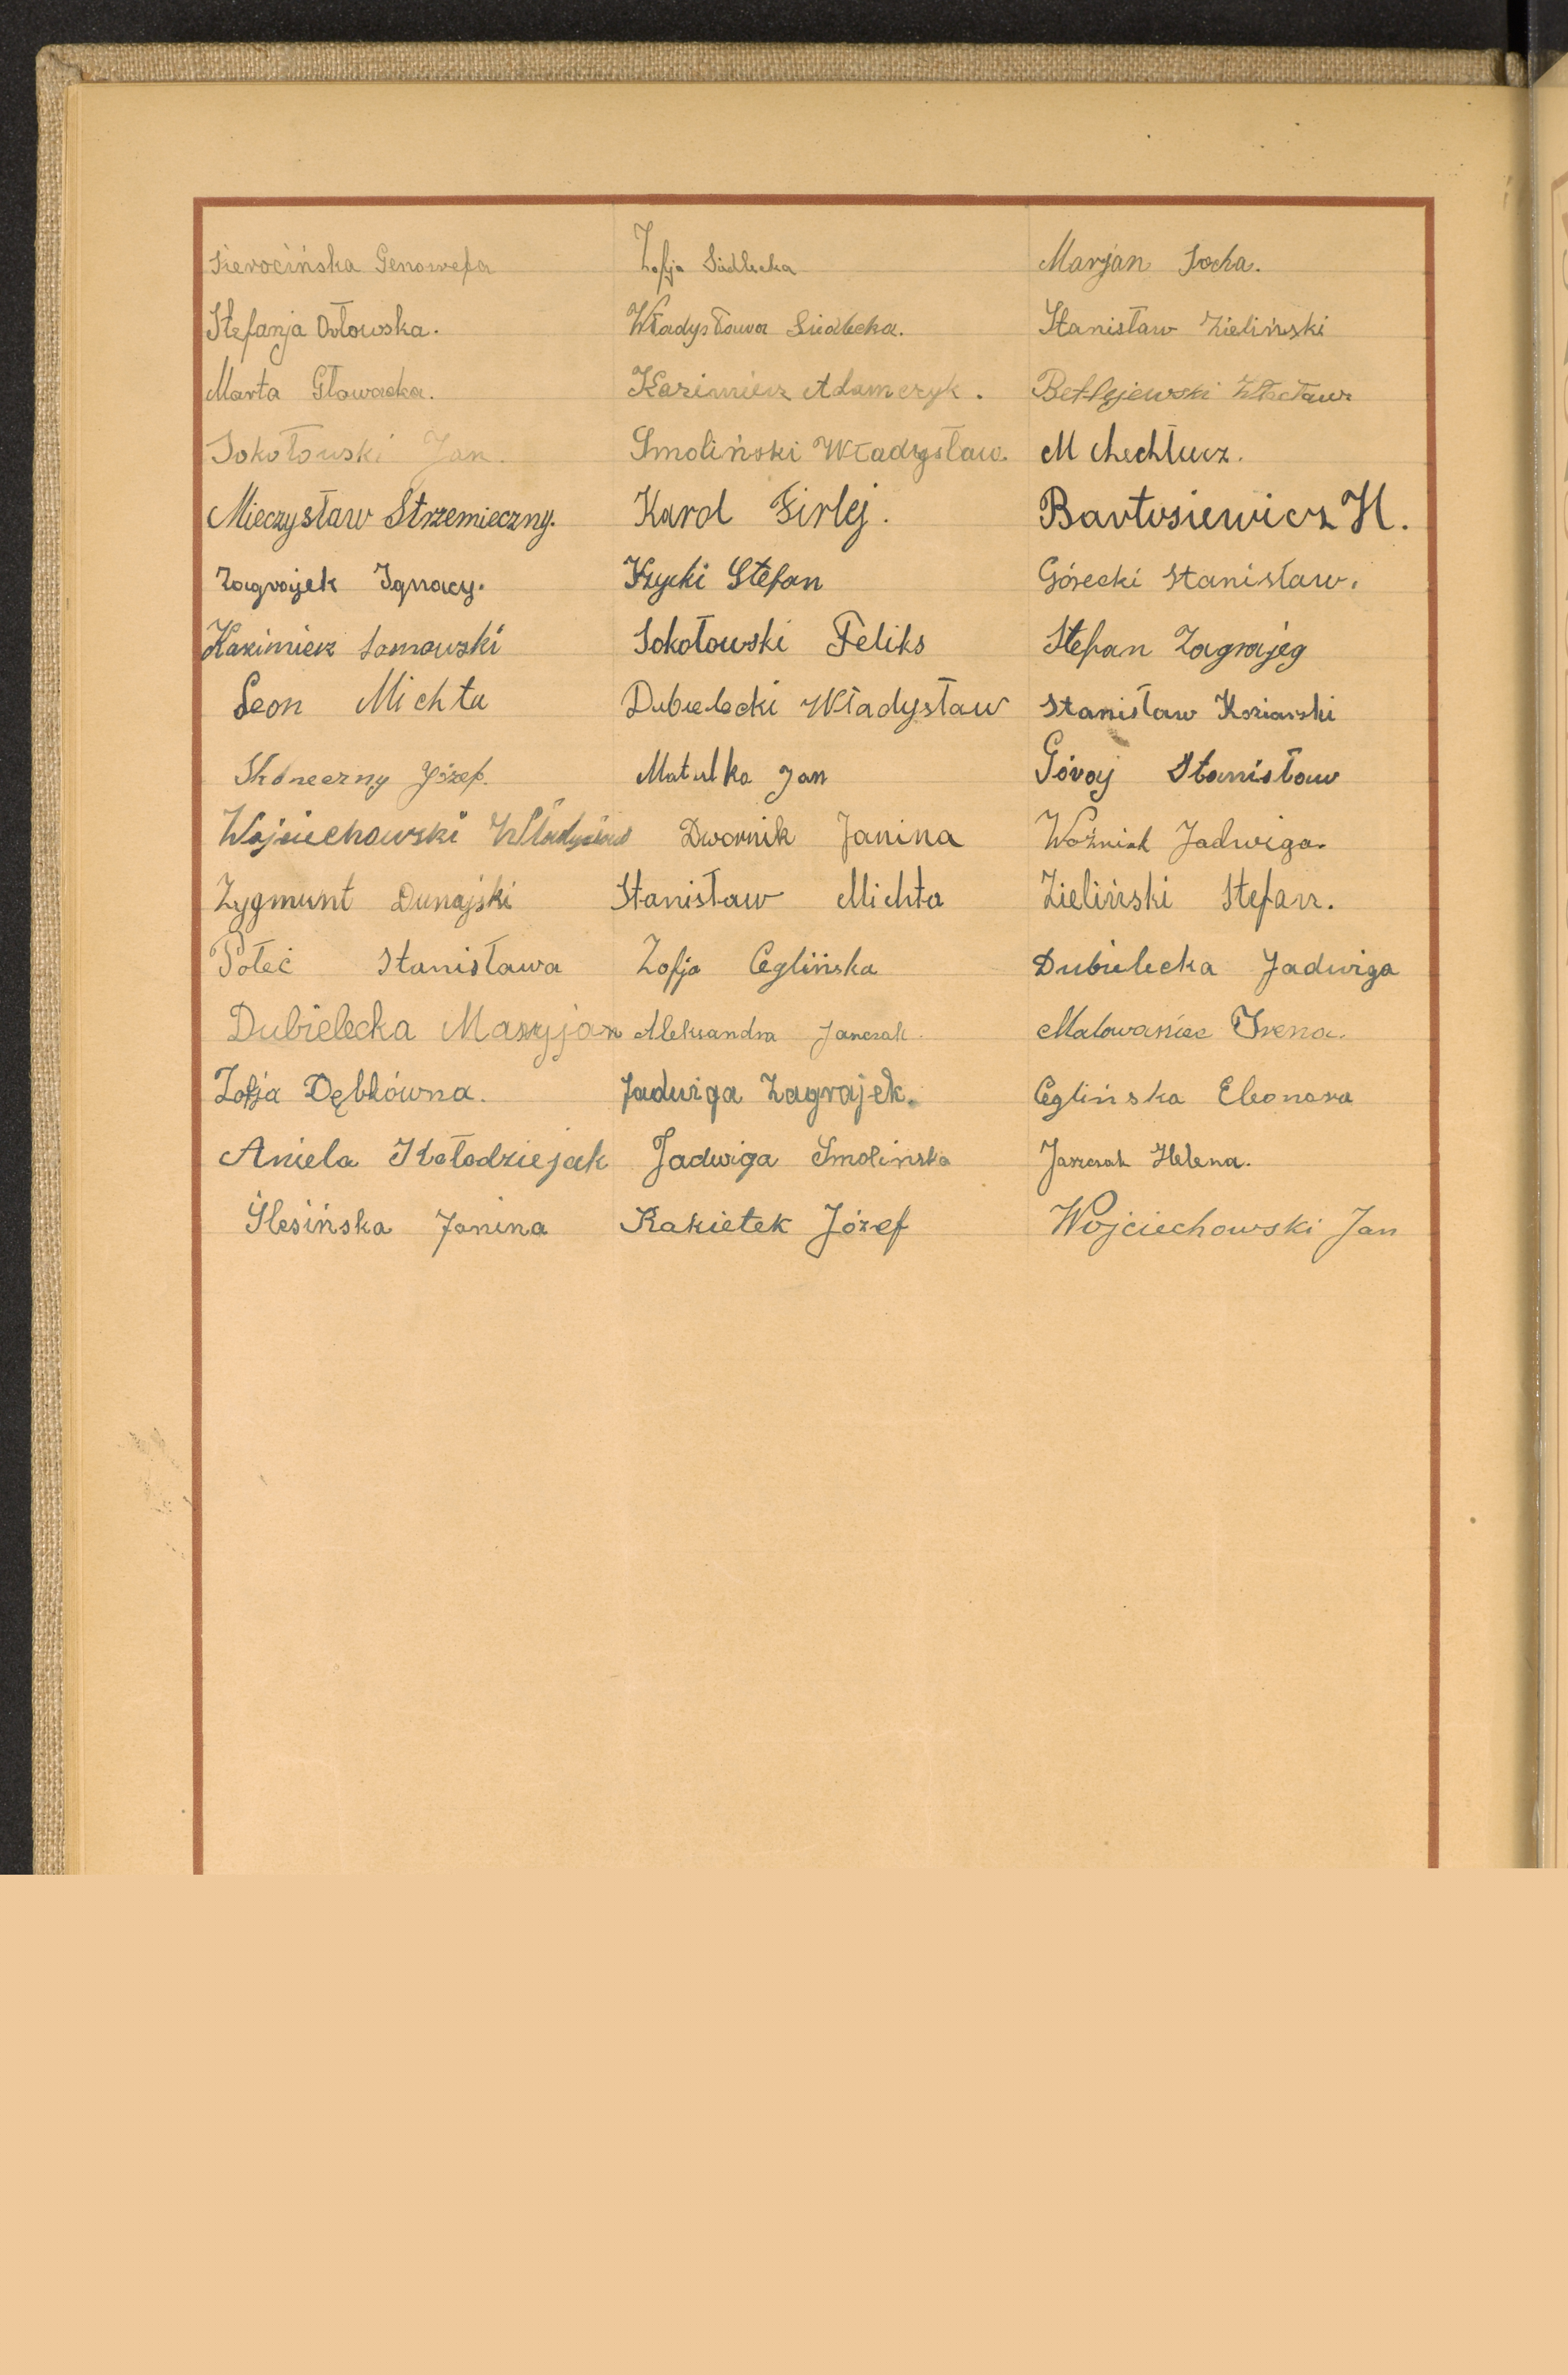 Sierocińska Genowefa
Zofja Siedlecka
Marjan Socha.
Stefanja Orłowska.
Władysława Siedlecka.
Stanisław Zieliński
Marta Głowacka.
Kazimierz Adamczyk.
Betlejewski Wacław
Sokołowski Jan.
Smoliński Władysław.
M
Mieczysław Strzemieczny.
Karol Firlej.
Bartosiewicz H.
Zagrajek Ignacy.
Stefan
Górecki Stanisław.
Kazimierz
Sokołowski Feliks
Stefan Zagrajeg
Leon Michta
Dubielecki Władysław
Stanisław Koziarski
Skoneczny Józef.
Matulka Jan
Góraj Stanisław
Wojciechowski Władysław
Dwornik Janina
Woźniak Jadwiga.
Zygmunt Dunajski
Stanisław Michta
Zieliński Stefan.
Połeć Stanisława
Zofja Ceglińska
Dubielecka Jadwiga
Dubielecka Maryjan
Aleksandra Janczak.
Malowaniec Irena.
Zofja Dębkówna.
Jadwiga Zagrajek.
Ceglińska Eleonora
Aniela Kołodziejak
Jadwiga Smolińska
Janczak Helena.
Ślesińska Janina
Rakietek Józef
Wojciechowski Jan